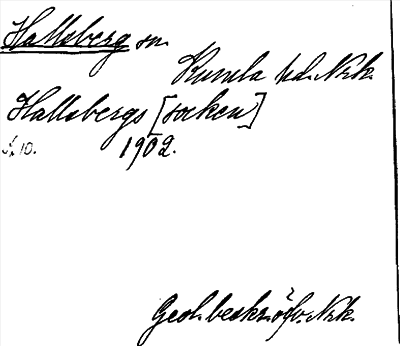 Hallsberg sn
Kumla hd. Nrk.
Hallsbergs [socken]
1902.
Geol. beskr. öfv. Nrk.